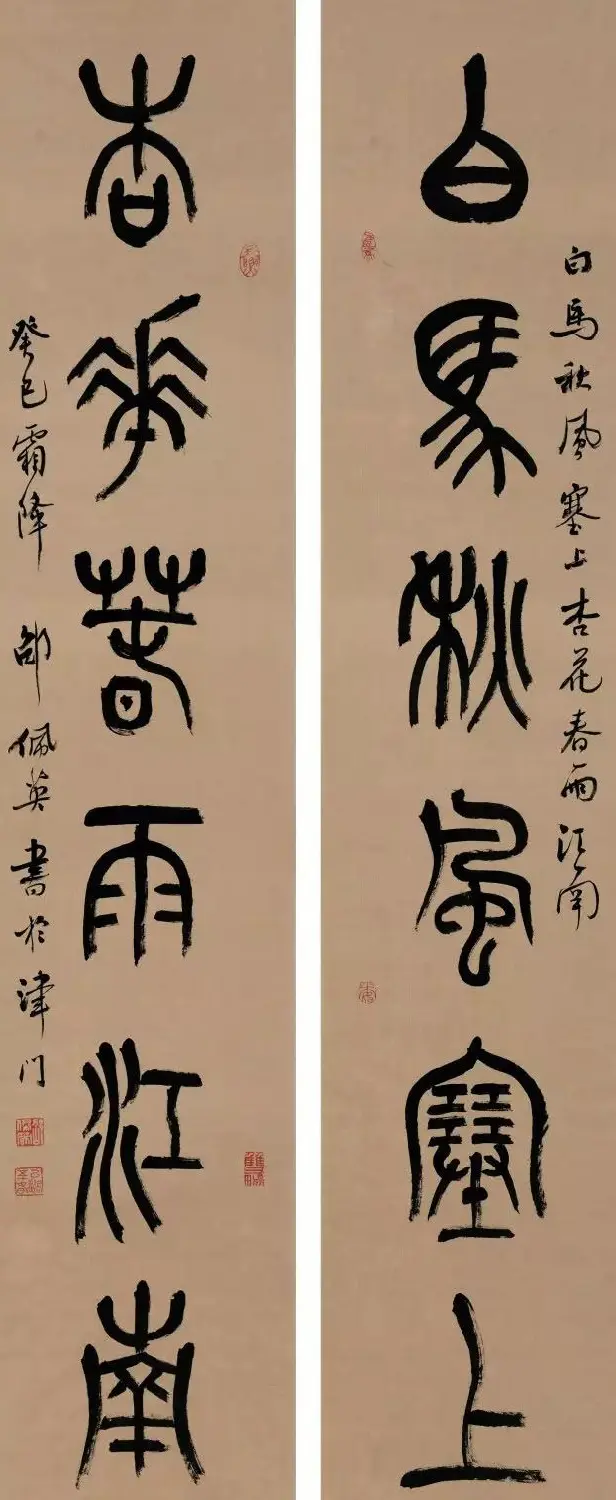 白馬秋風塞上
白馬秋風塞上杏花春雨江南
杏華萅雨江南
癸巳霜降 邵佩英書於津門